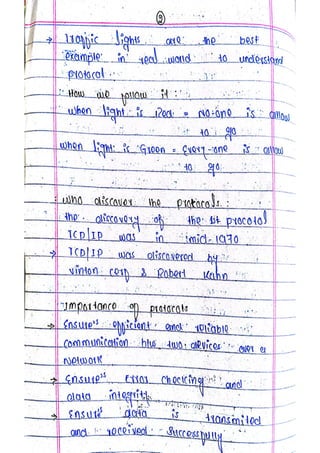 2
→ Traffic lights are the best
example in real world to understand
protocol.
How we follow it :
when light is Red = No-one is allow
to go
when light is Green = Every-one is allow
to go.
who discover the protocols :
the discovery of the 1st procotol
TCP/IP was in mid-1970
→ TCP/IP was discovered by
vinton cerf & Robert Kahn
Importance of protocals
→ Ensures efficient and reliable
communication btw two devices over a
Network
→ Ensures Error checking and
data integrity
→ Ensure data is transmited
and received successfully